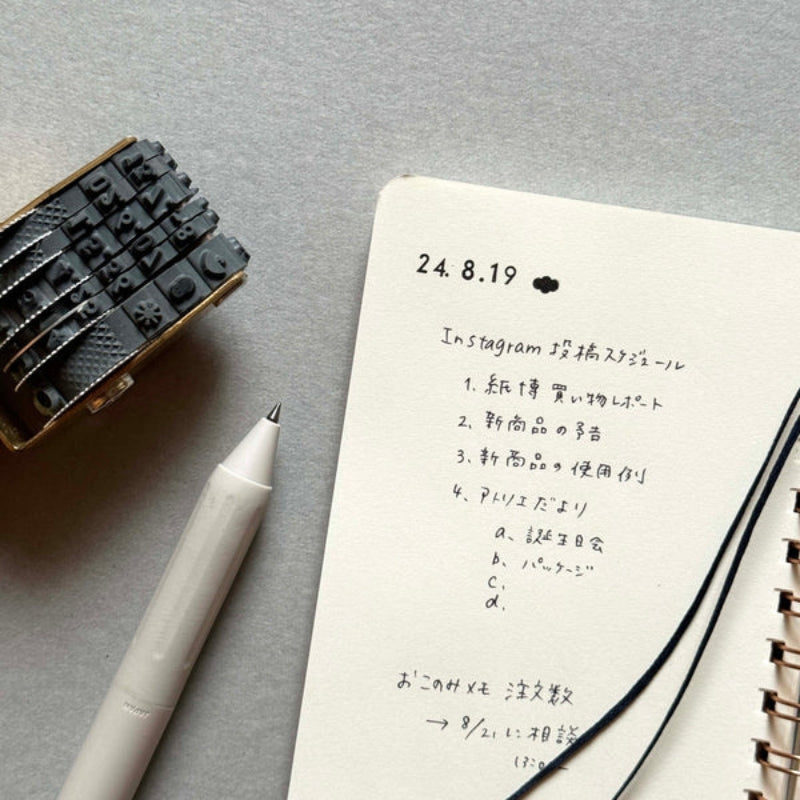 24.8.19
Instagram 投稿スケジュール
1. 紙博 買い物レポート
2. 新商品の予告
3. 新商品の使用例
4. アトリエだより
a. 誕生日会
b. パッケージ
c.
d.
おこのみメモ 注文数
→ 8/21 に相談